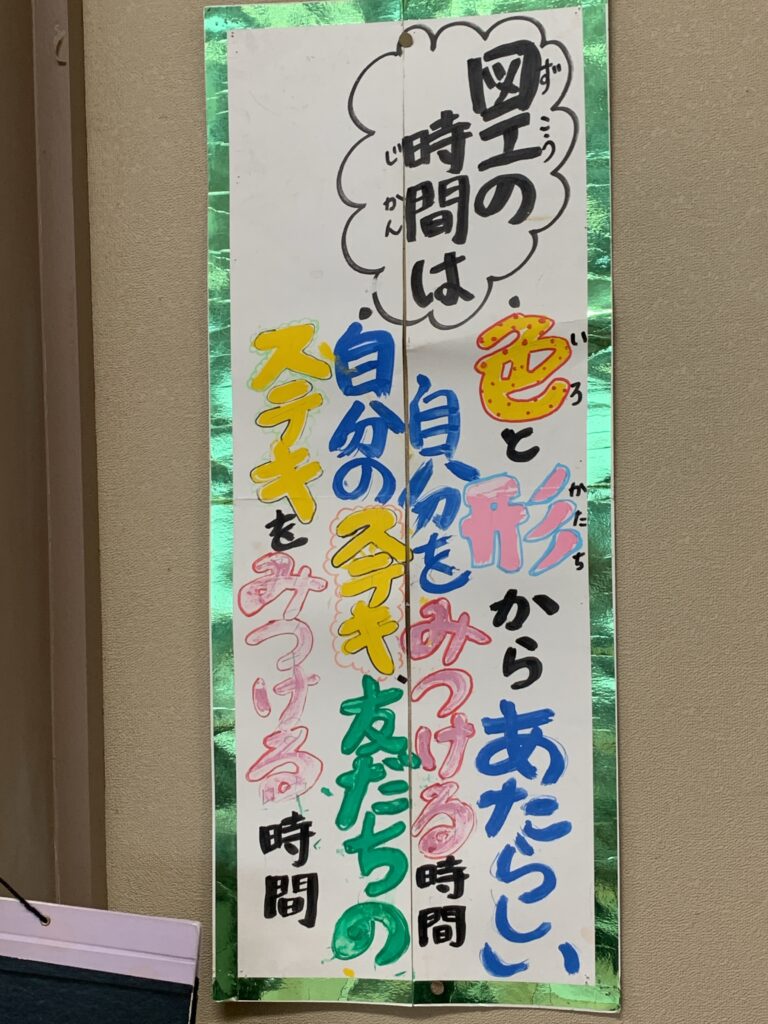 図工の
ずこう
時間は
じかん
・色と形からあたらしい
いろ
かたち
自分をみつける時間
・自分のステキ、友だちの
ステキをみつける時間